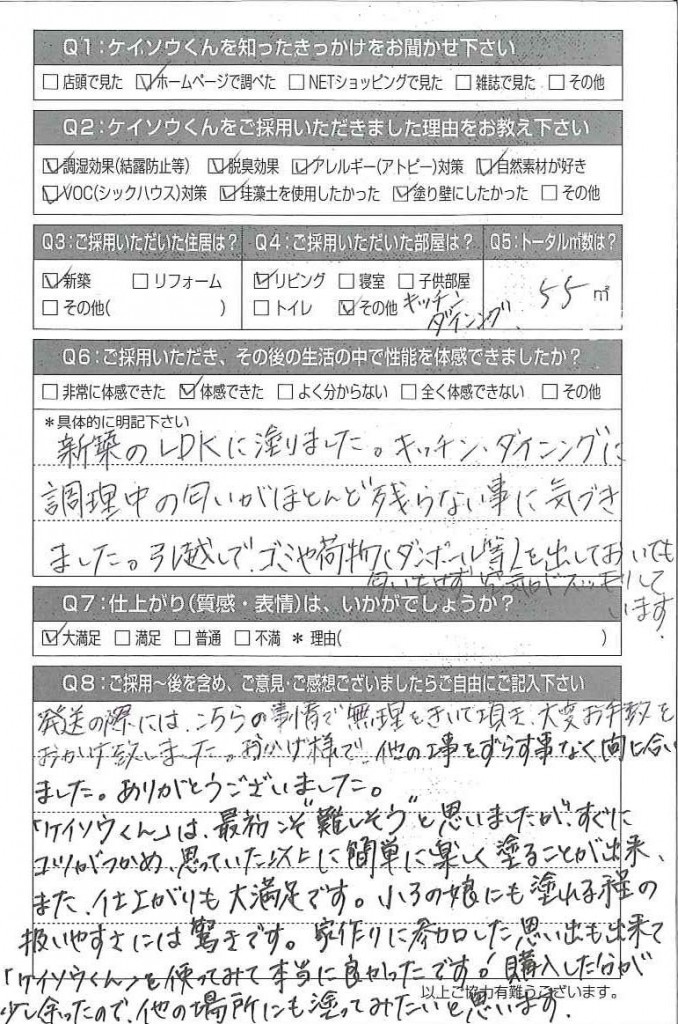 Q1：ケイソウくんを知ったきっかけをお聞かせ下さい
□店頭で見た ☑ホームページで調べた □NETショッピングで見た □雑誌で見た □その他
Q2：ケイソウくんをご採用いただきました理由をお教え下さい
☑調湿効果(結露防止等) ☑脱臭効果 ☑アレルギー(アトピー)対策 ☑自然素材が好き
☑VOC(シックハウス)対策 ☑珪藻土を使用したかった ☑塗り壁にしたかった □その他
Q3：ご採用いただいた住居は？ Q4：ご採用いただいた部屋は？ Q5：トータル㎡数は？
☑新築 □リフォーム ☑リビング □寝室 □子供部屋 55㎡
□その他( ) □トイレ ☑その他 キッチン
ダイニング
Q6：ご採用いただき、その後の生活の中で性能を体感できましたか？
□非常に体感できた ☑体感できた □よく分からない □全く体感できない □その他
＊具体的に明記下さい
新築のLDKに塗りました。キッチン・ダイニングに
調理中の匂いがほとんど残らない事に気づき
ました。引越しで、ゴミや荷物(ダンボール等)を出しておいても
匂いもせず空気がスッキリして
います。
Q7：仕上がり(質感・表情)は、いかがでしょうか？
☑大満足 □満足 □普通 □不満 ＊理由( )
Q8：ご採用～後を含め、ご意見・ご感想ございましたらご自由にご記入下さい
発送の際には、こちらの事情で無理をきいて頂き、大変お手数を
おかけ致しました。おかげ様で、他の工事をずらす事なく間に合い
ました。ありがとうございました。
「ケイソウくん」は、最初こそ"難しそう"と思いましたが、すぐに
コツがつかめ、思っていた以上に簡単に楽しく塗ることが出来、
また、仕上がりも大満足です。小3の娘にも塗れる程の
扱いやすさには驚きです。家作りに参加した思い出も出来て
「ケイソウくん」を使ってみて本当に良かったです！購入した分が
以上ご協力有難うございます。
少し余ったので、他の場所にも塗ってみたいと思います。